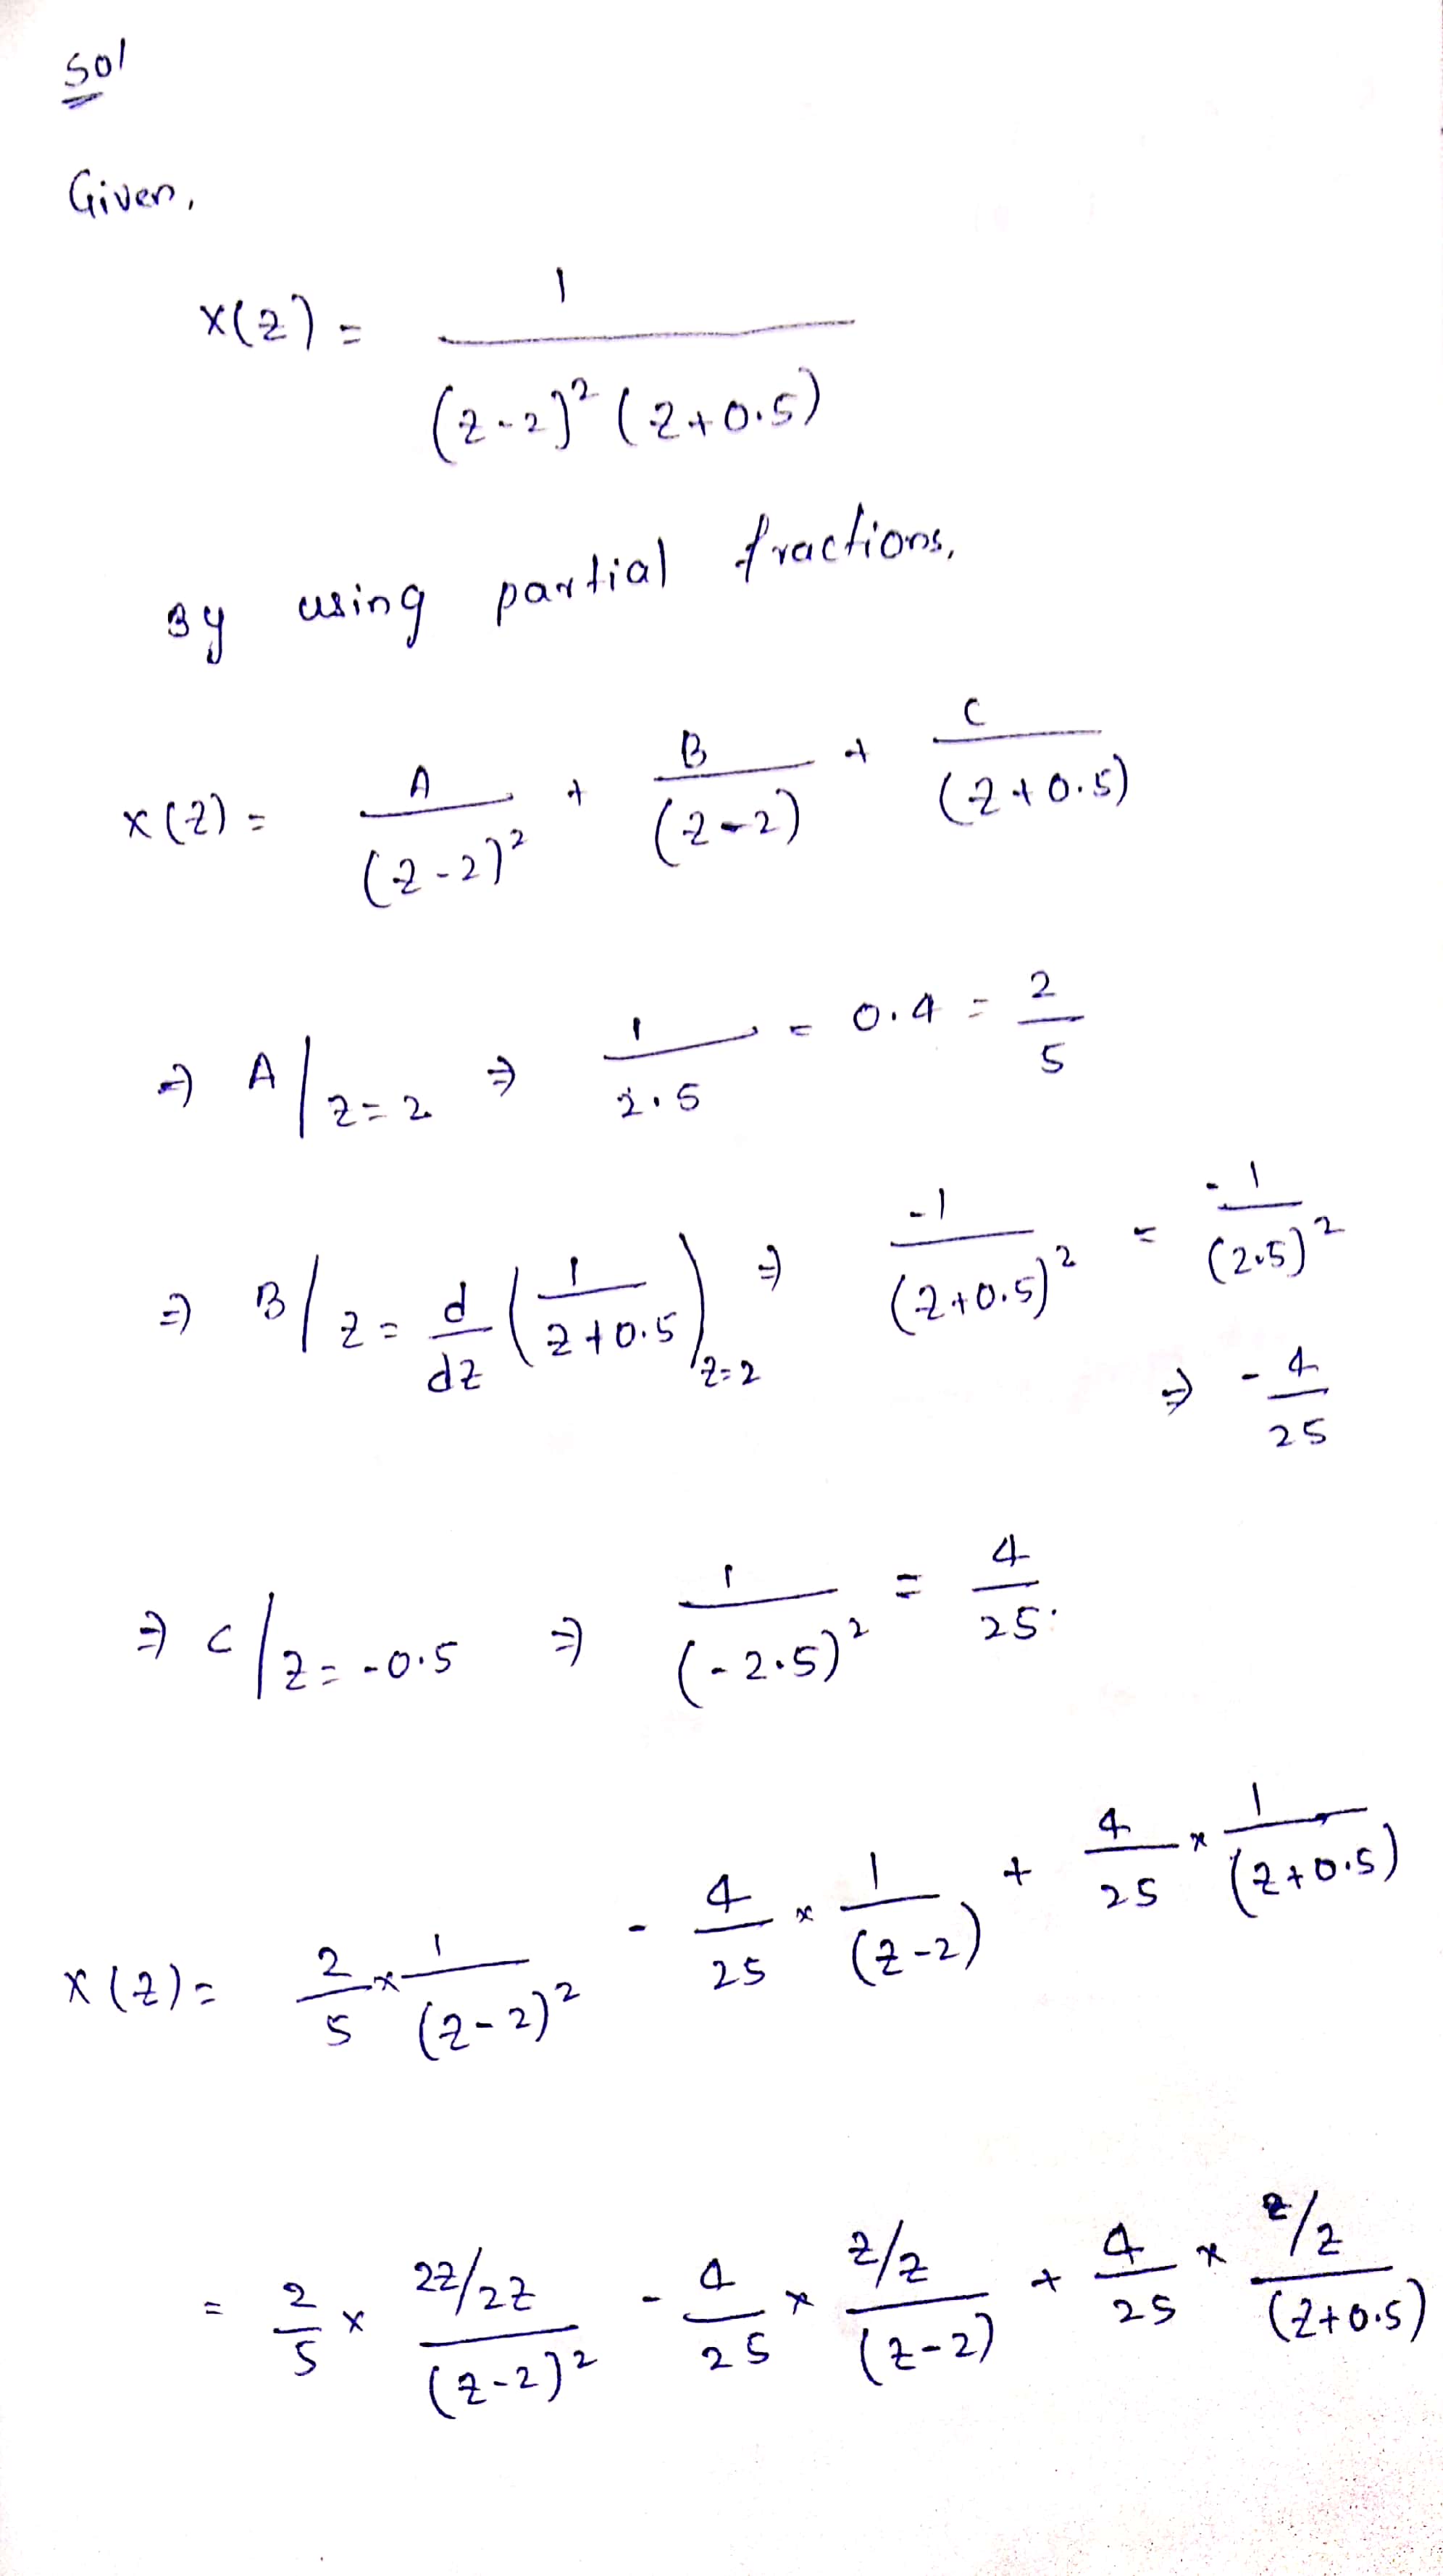 Sol
Given,
X(z) = 1 / ((z-2)² (z+0.5))
By using partial fractions,
x(z) = A/(z-2)² + B/(z-2) + C/(z+0.5)
⇒ A|z=2 ⇒ 1/2.5 = 0.4 = 2/5
⇒ B|z = d/dz (1/(z+0.5))|z=2 ⇒ -1/(z+0.5)² = -1/(2.5)²
⇒ -4/25
⇒ C|z=-0.5 ⇒ 1/(-2.5)² = 4/25.
X(z) = 2/5 × 1/(z-2)² - 4/25 × 1/(z-2) + 4/25 × 1/(z+0.5)
= 2/5 × (2z/2z)/(z-2)² - 4/25 × (z/z)/(z-2) + 4/25 × (z/z)/(z+0.5)